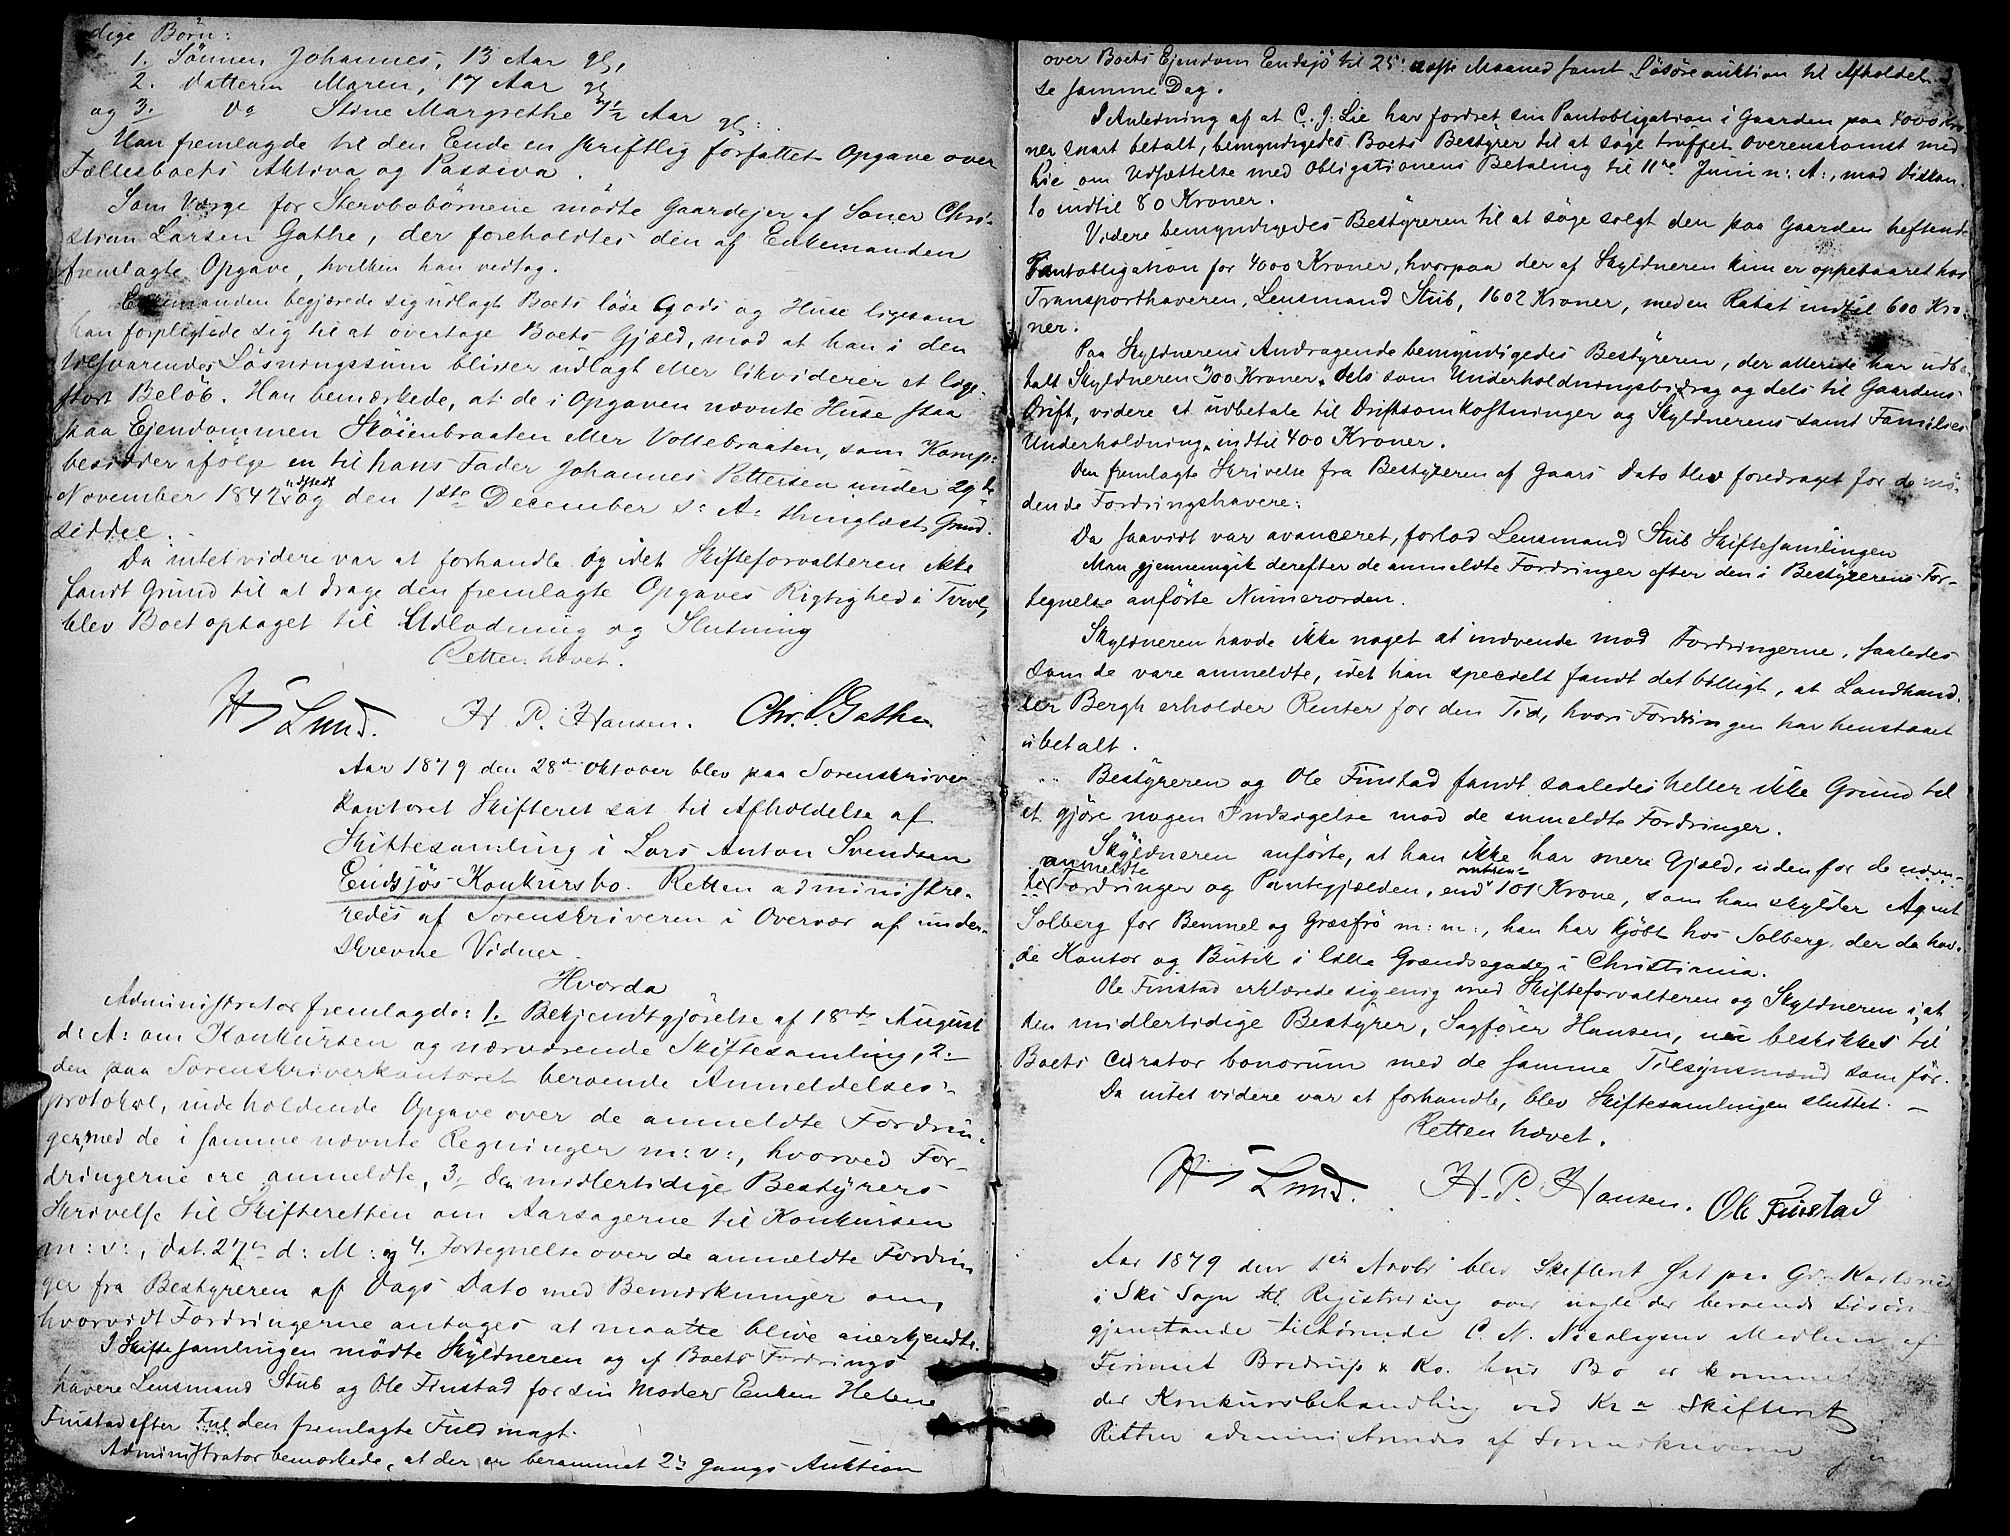 dige Børn:
1. Sønnen Johannes, 13 Aar gl,
2. Datteren Maren, 17 Aar gl
og 3. Do Stine Margrethe 7½ Aar gl:
Han fremlagde til den Ende en skriftlig forfattet Opgave over
Fællesboets Aktiva og Passiva.
Som Værge for Stervbobørnene mødte Gaardejer af Soner Chri-
stian Larsen Gathe, der foreholdtes den af Enkemanden
fremlagte Opgave, hvilken han vedtog.
Enkemanden begjærede sig udlagt Boets løse Gods og Huse ligesom
han forpligtede sig til at overtage Boets Gjæld, mod at han i den
tilsvarende Løsningssum bliver udlagt eller likviderer et lige-
stort Beløb. Han bemærkede, at de i Opgaven nævnte Huse staa
paa Ejendommen Skøienbraaten eller Vollebraaten, som Komp:
besidder ifølge en til hans Fader Johannes Pettersen under 29de
November 1842 udstedt og den 1ste December s: A: thinglæst Grund-
seddel.
Da intet videre var at forhandle og idet Skifteforvalteren ikke
fandt Grund til at drage den fremlagte Opgaves Rigtighed i Tvivl,
blev Boet optaget til Udlodning og Slutning
Retten hævet.
Lund. H. P. Hansen. Chr. L Gathe
Aar 1879 den 28de Oktober blev paa Sorenskriver
kontoret Skifteret sat til Afholdelse af
Skiftesamling i Lars Anton Svendsen
Endsjøs Konkursbo. Retten administre-
redes af Sorenskriveren i Overvær af under-
skrevne Vidner.
Hvorda
Administrator fremlagde: 1. Bekjendtgjørelse af 18de August
d: A: om Konkursen og nærværende Skiftesamling, 2.
den paa Sorenskriverkontoret beroende Anmeldelses-
protokol, indeholdende Opgave over de anmeldte Fordrin-
ger, med de i samme nævnte Regninger m: v:, hvorved For-
dringerne ere anmeldte, 3. den midlertidige Bestyrers
Skrivelse til Skifteretten om Aarsagerne til Konkursen
m: v:, dat. 27de d: M: og 4. Fortegnelse over de anmeldte Fordrin
ger fra Bestyreren af Dags Dato med Bemærkninger om,
hvorvidt Fordringerne antages at maatte blive anerkjendte.
I Skiftesamlingen mødte Skyldneren og af Boets Fordrings
havere Lensmand Stub og Ole Finstad for sin Moder Enken Helene
Finstad efter den fremlagte Fuldmagt.
Administrator bemærkede, at der er berammet 2den Gangs Auktion
over Boets Ejendom Endsjø til 25. næste Maaned samt Løsøreauktion til Afholdel-
se samme Dag.
I Anledning af at C. J. Lie har fordret sin Pantobligation i Gaarden paa 4000 Kro-
ner snart betalt, bemyndigedes Boets Bestyrer til at søge truffet Overenskomst med
Lie om Udsættelse med Obligationens Betaling til 11te Juni n: A:, mod Diskon-
to indtil 80 Kroner.
Videre bemyndigedes Bestyreren til at søge solgt den paa Gaarden heftende
Pantobligation for 4000 Kroner, hvorpaa der af Skyldneren kun er oppebaaret hos
Transporthaveren, Lensmand Stub, 1602 Kroner, med en Rabat indtil 600 Kro-
ner.
Paa Skyldnerens Andragende bemyndigedes Bestyreren, der allerede har udbe-
talt Skyldneren 300 Kroner, dels som Underholdningsbidrag og dels til Gaardens
Drift, videre at udbetale til Driftsomkostninger og Skyldnerens samt Families
Underholdning indtil 400 Kroner.
Den fremlagte Skrivelse fra Bestyreren af Gaars Dato blev foredraget for de mø-
dende Fordringshavere.
Da saavidt var avanceret, forlod Lensmand Stub Skiftesamlingen
Man gjennemgik derefter de anmeldte Fordringer efter den i Bestyrerens For-
tegnelse anførte Nummerorden.
Skyldneren havde ikke noget at indvende mod Fordringerne, saaledes
som de vare anmeldte, idet han specielt fandt det billigt, at Landhand-
ler Bergh erholder Renter for den Tid, hvori Fordringen har henstaaet
ubetalt.
Bestyreren og Ole Finstad fandt saaledes heller ikke Grund til
at gjøre nogen Indsigelse mod de anmeldte Fordringer.
Skyldneren anførte, at han ikke har mere Gjæld, uden for de nævn-
te anmeldte Fordringer og Pantegjælden, end omtrent 101 Krone, som han skylder Agent
Solberg for Benmel og Græsfrø m: m:, han har kjøbt hos Solberg, der da hav-
de Kontor og Butik i lille Grændsegade i Christiania.
Ole Finstad erklærede sig enig med Skifteforvalteren og Skyldneren i, at
den midlertidige Bestyrer, Sagfører Hansen, nu beskikkes til
Boets curator bonorum med de samme Tilsynsmænd som før.
Da intet videre var at forhandle, blev Skiftesamlingen sluttet. —
Retten hævet.
Lund. H. P. Hansen. Ole Finstad
Aar 1879 den 1ste Novbr blev Skifteret sat paa Gr. Karlsrud
i Ski Sogn til Registrering over nogle der beroende Løsøre
gjenstande tilhørende C. N. Nicolaysen Medlem af
Firmaet Bredrup & Ko. hvis Bo er kommet
der Konkursbehandling ved Kra Skifteret
Retten administreredes af Sorenskriveren